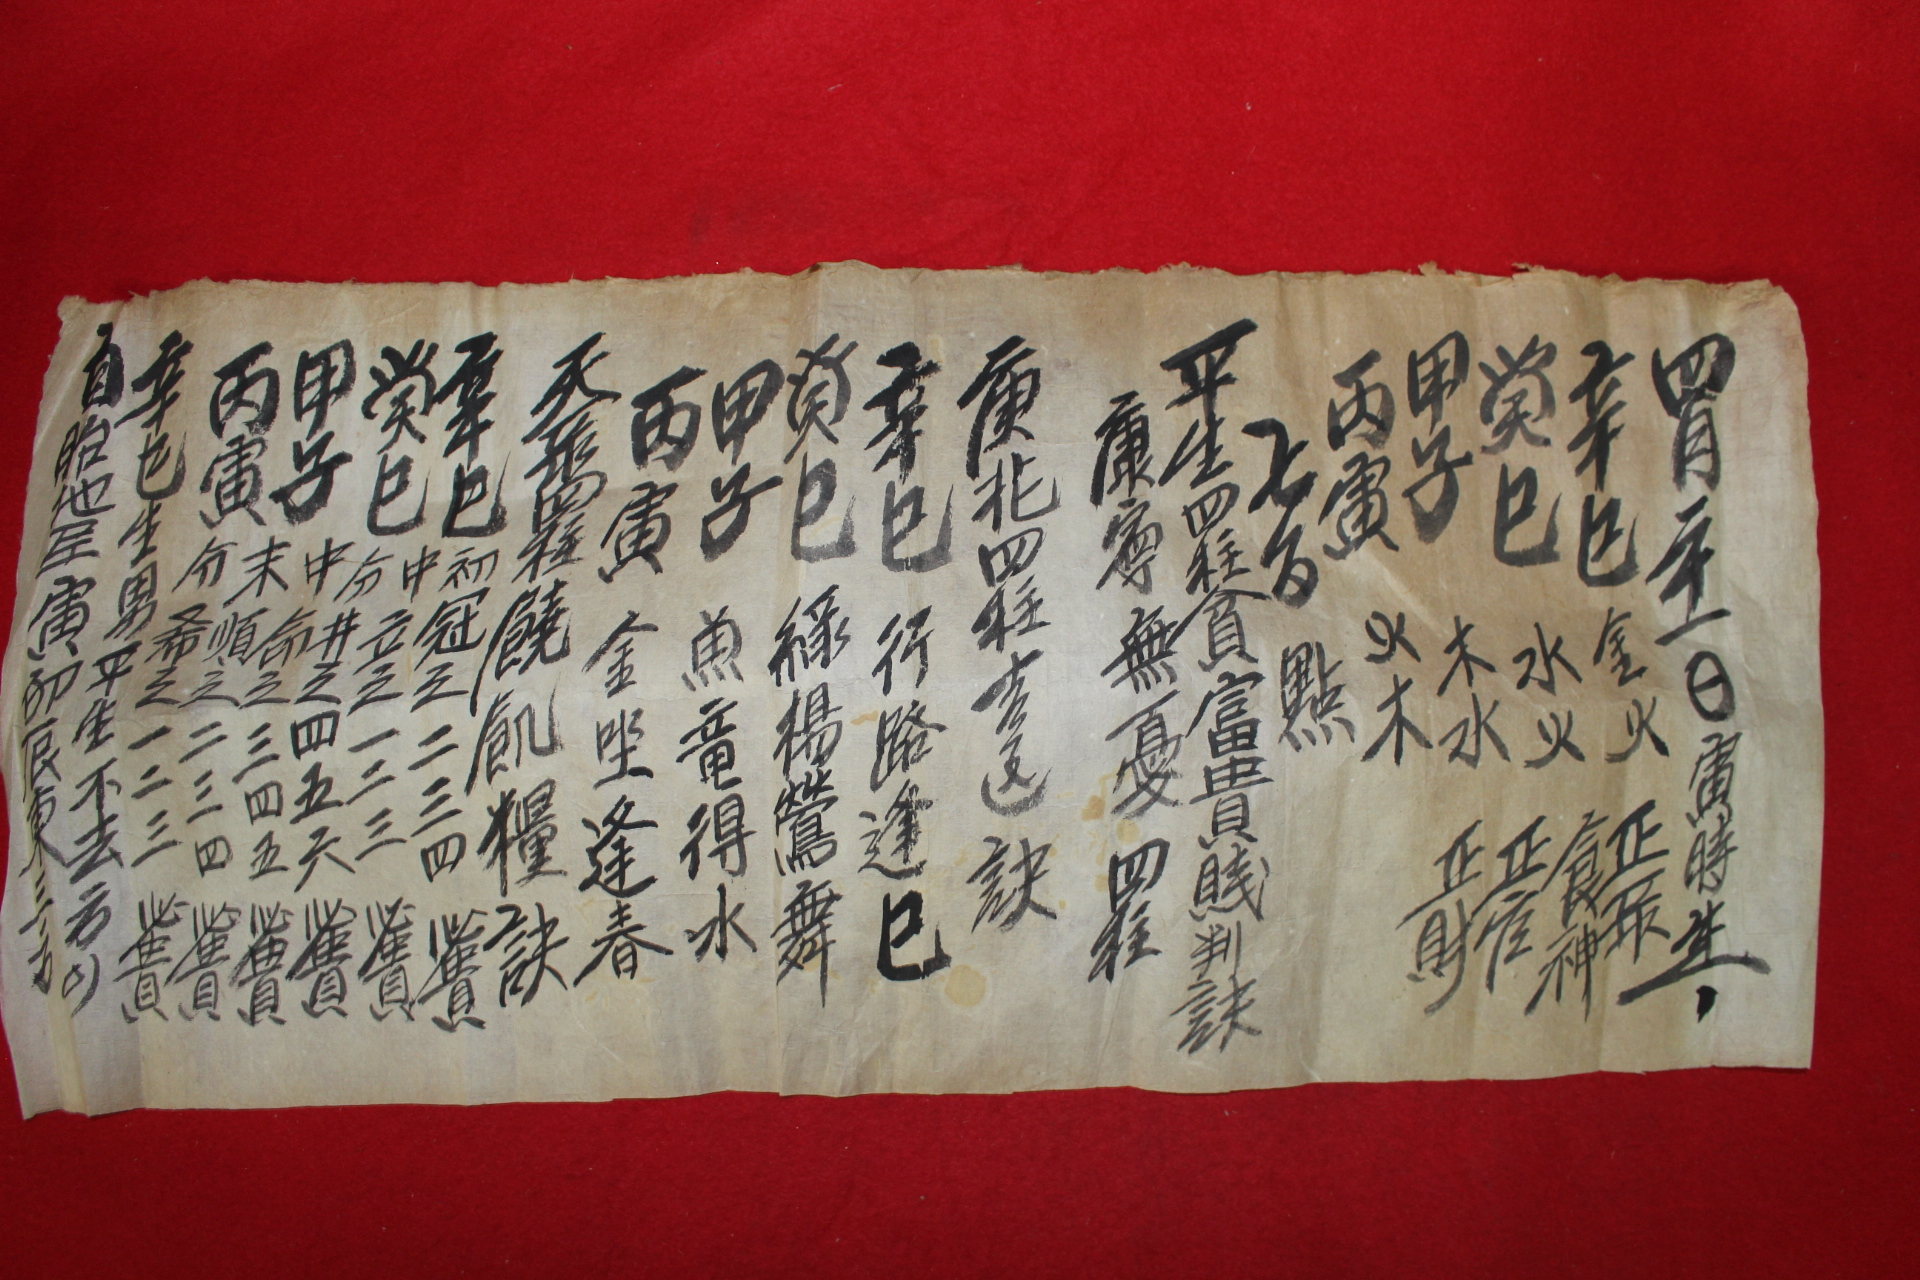 四月二十一日寅時生
辛巳 金火 正
癸巳 水火 食神
甲子 木水 正官
丙寅 火木 正財
七百 點
平生四柱貧富貴賤判訣
康寧無憂四柱
庚兆四柱 訣
辛巳 行路逢巳
癸巳 綠楊鶯舞
甲子 魚竜得水
丙寅 金坐逢春
四柱饒飢糧訣
辛巳 初冠之 二三四
癸巳 中分立之 一二三
甲子 中井之 四五六
末命之 三四五
丙寅 分順之 二三四
希之 一二三
辛巳生男平生不去方
自胎地 寅卯辰東三方